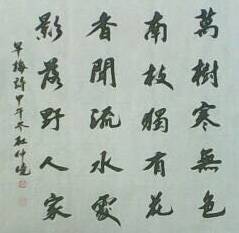 萬樹寒無色
南枝獨有花
香聞流水處
影落野人家
早梅詩甲午冬杜仲曉